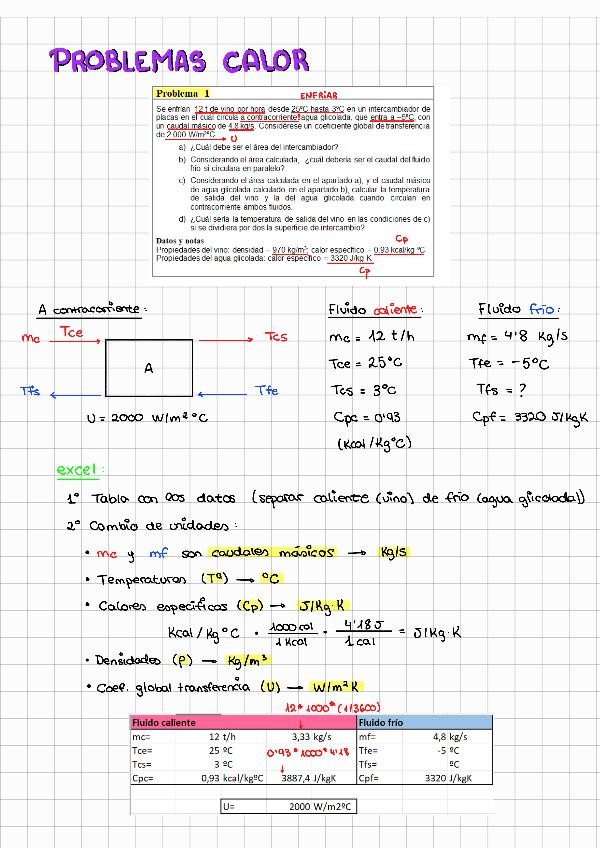 PROBLEMAS CALOR
Problema 1
ENFRIAR
Se enfrían 12 t de vino por hora desde 25ºC hasta 3ºC en un intercambiador de
placas en el cual circula a contracorriente agua glicolada, que entra a –5ºC, con
un caudal másico de 4,8 kg/s. Considérese un coeficiente global de transferencia
de 2 000 W/m²ºC
U
a) ¿Cuál debe ser el área del intercambiador?
b) Considerando el área calculada, ¿cuál debería ser el caudal del fluido
frío si circulara en paralelo?
c) Considerando el área calculada en el apartado a), y el caudal másico
de agua glicolada calculado en el apartado b), calcular la temperatura
de salida del vino y la del agua glicolada cuando circulan en
contracorriente ambos fluidos.
d) ¿Cuál sería la temperatura de salida del vino en las condiciones de c)
si se dividiera por dos la superficie de intercambio?
Datos y notas
Cp
Propiedades del vino: densidad = 970 kg/m³; calor específico = 0,93 kcal/kg ºC
Propiedades del agua glicolada: calor específico = 3320 J/kg K
Cp
A contracorriente:
mc Tce Tcs
A
Tfs Tfe
U = 2000 W/m² ºC
Fluido caliente:
mc = 12 t/h
Tce = 25ºC
Tcs = 3ºC
Cpc = 0'93
(Kcal/KgºC)
Fluido frío:
mf = 4'8 Kg/s
Tfe = -5ºC
Tfs = ?
Cpf = 3320 J/KgK
excel:
1º Tabla con los datos (separar caliente (vino) de frío (agua glicolada))
2º Cambio de unidades:
• mc y mf son caudales másicos → Kg/s
• Temperaturas (Tª) → ºC
• Calores específicos (Cp) → J/Kg·K
Kcal/KgºC · 1000 cal / 1 Kcal · 4'18 J / 1 cal = J/Kg·K
• Densidades (ρ) → Kg/m³
• Coef. global transferencia (U) → W/m²K
12*1000*(1/3600)
Fluido caliente Fluido frío
mc= 12 t/h 3,33 kg/s mf= 4,8 kg/s
Tce= 25 ºC 0'93*1000*4'18 Tfe= -5 ºC
Tcs= 3 ºC Tfs= ºC
Cpc= 0,93 kcal/kgºC 3887,4 J/kgK Cpf= 3320 J/kgK
U= 2000 W/m2ºC